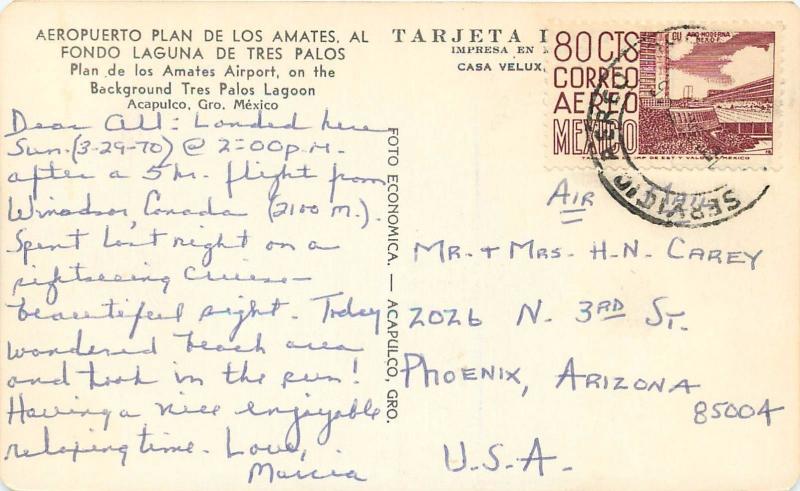 AEROPUERTO PLAN DE LOS AMATES, AL
FONDO LAGUNA DE TRES PALOS
Plan de los Amates Airport, on the
Background Tres Palos Lagoon
Acapulco, Gro. México
TARJETA
IMPRESA EN
CASA VELUX,
80 CTS
CORREO
AEREO
MEXICO
CU ARQ-MODERNA
MEX D.F.
SERVICIO AEREO
Dear All: Landed here
Sun. (3-29-70) @ 2:00 p.m.
after a 5 hr. flight from
Windsor, Canada (2100 M.).
Spent last night on a
sightseeing cruise –
beautiful sight. Today
wandered beach area
and took in the sun!
Having a nice enjoyable
relaxing time. Love,
Marcia
FOTO ECONOMICA. — ACAPULCO, GRO.
AIR MAIL
MR. + MRS. H. N. CAREY
2026 N. 3RD ST.
PHOENIX, ARIZONA
85004
U.S.A.